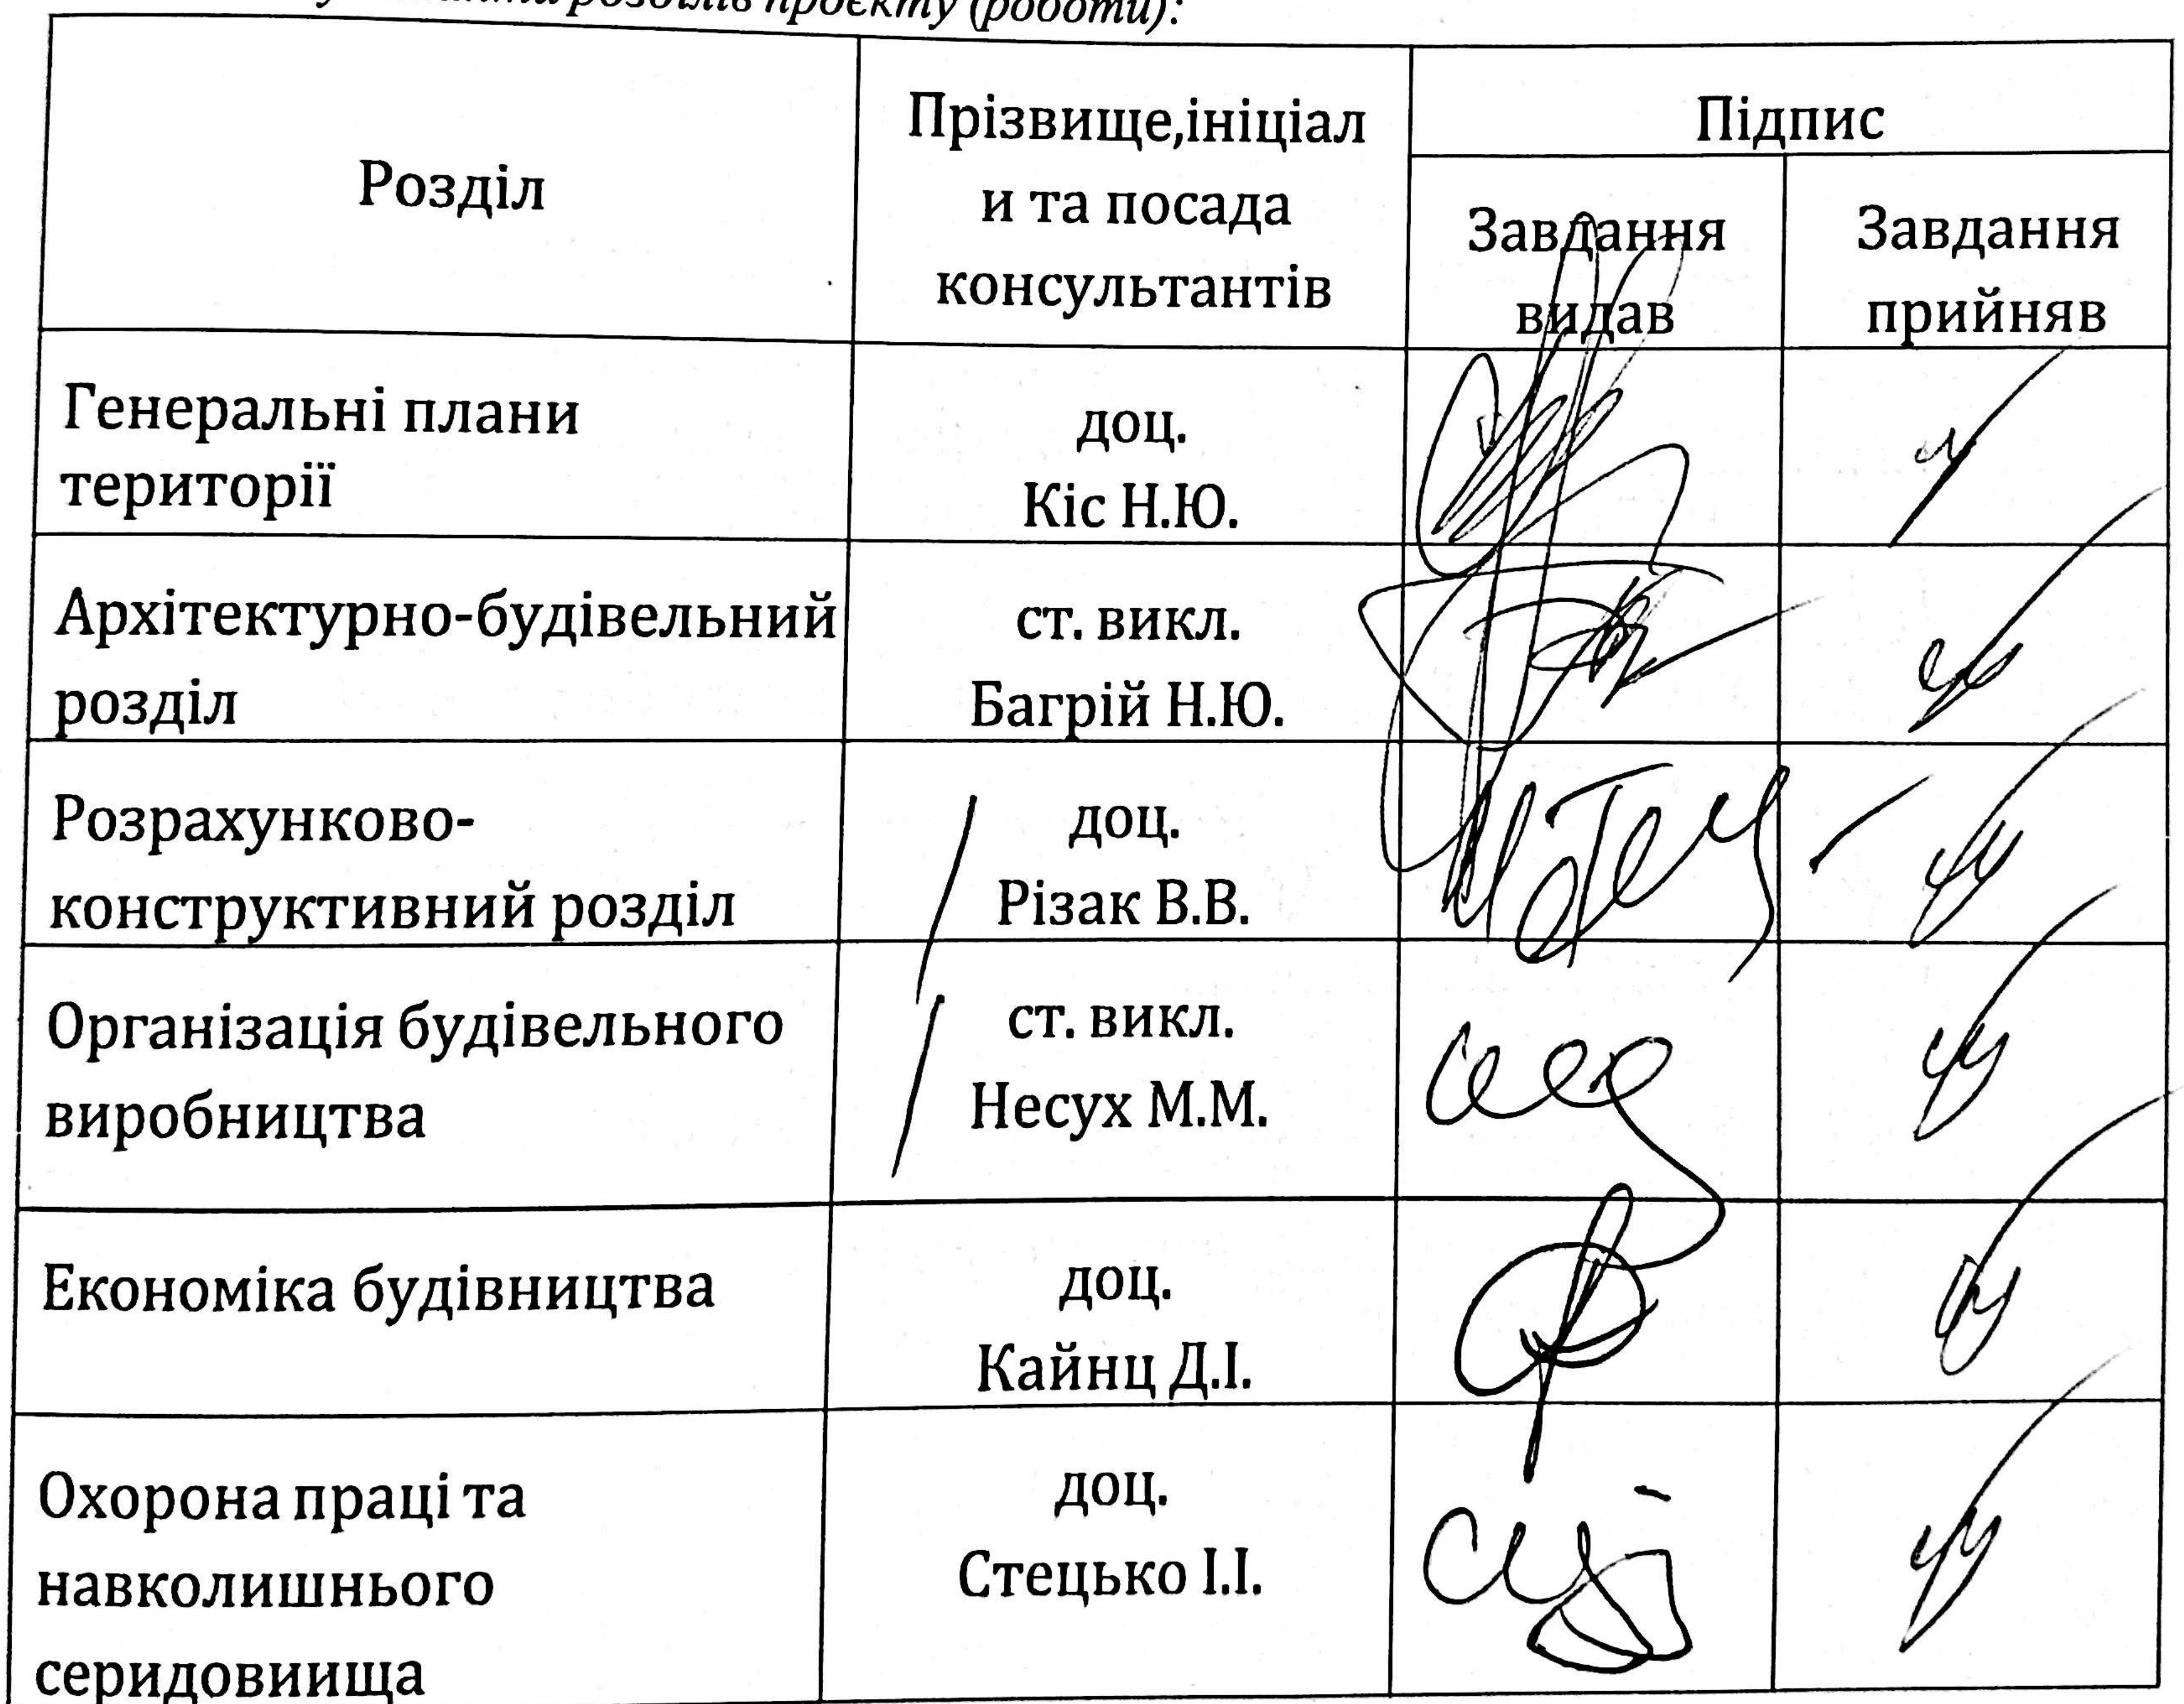 розділів проєкту (роботи):
Розділ
Прізвище,ініціал
и та посада
консультантів
Підпис
Завдання
видав
Завдання
прийняв
Генеральні плани
території
доц.
Кіс Н.Ю.
Архітектурно-будівельний
розділ
ст. викл.
Багрій Н.Ю.
Розрахунково-
конструктивний розділ
доц.
Різак В.В.
Організація будівельного
виробництва
ст. викл.
Несух М.М.
Економіка будівництва
доц.
Кайнц Д.І.
Охорона праці та
навколишнього
серидовиища
доц.
Стецько І.І.